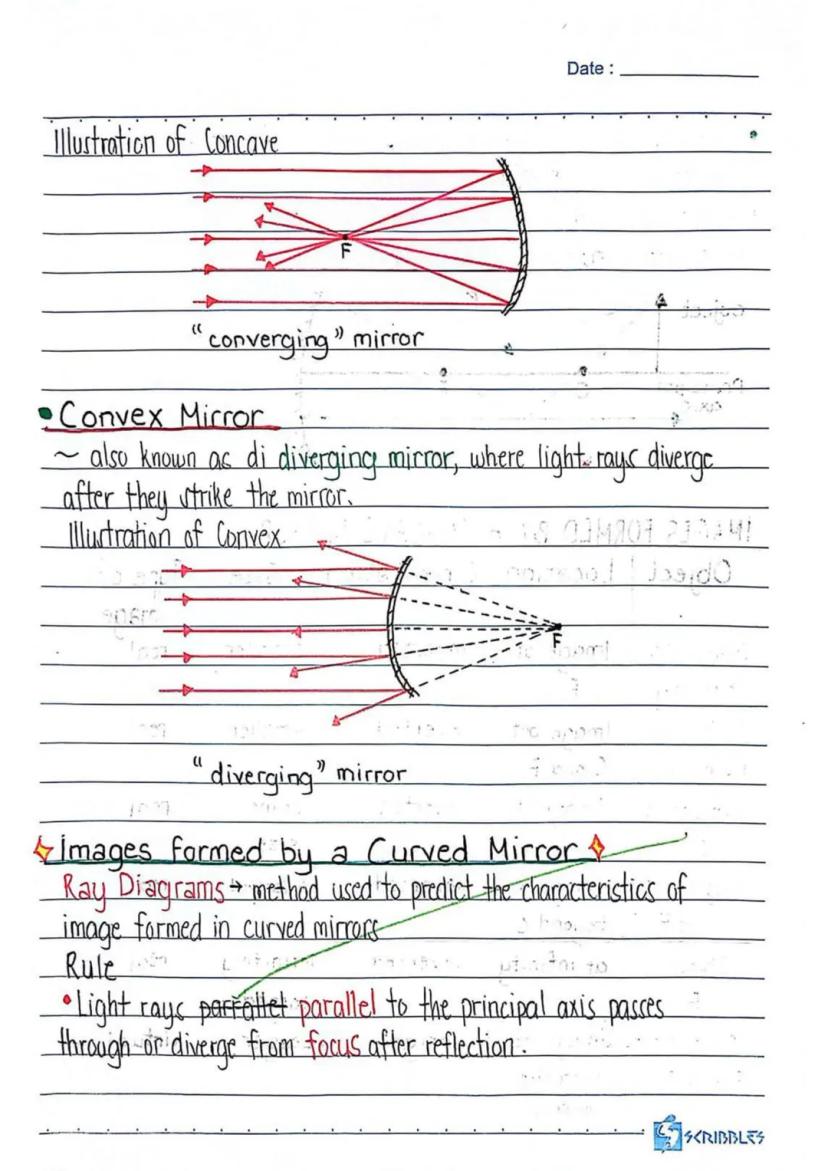 Date :
Illustration of Concave
F
"converging" mirror
• Convex Mirror
~ also known as di diverging mirror, where light rays diverge
after they strike the mirror.
Illustration of Convex
F
"diverging" mirror
Images formed by a Curved Mirror
Ray Diagrams → method used to predict the characteristics of
image formed in curved mirrors
Rule
• Light rays parrallel parallel to the principal axis passes
through or diverge from focus after reflection.
SCRIBBLES